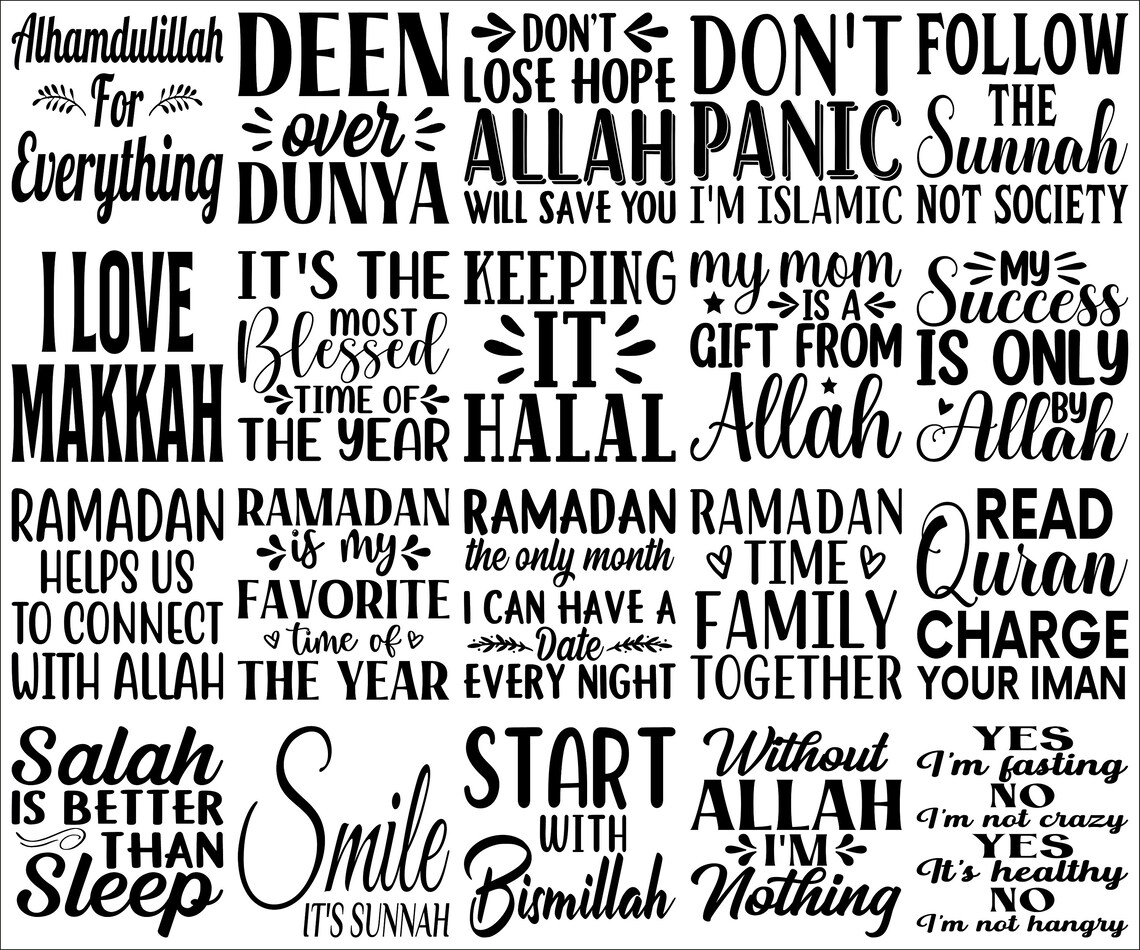 Alhamdulillah
For
Everything
DEEN
over
DUNYA
DON'T
LOSE HOPE
ALLAH
WILL SAVE YOU
DON'T
PANIC
I'M ISLAMIC
FOLLOW
THE
Sunnah
NOT SOCIETY
I LOVE
MAKKAH
IT'S THE
MOST
Blessed
TIME OF
THE YEAR
KEEPING
IT
HALAL
my mom
IS A
GIFT FROM
Allah
MY
Success
IS ONLY
BY
Allah
RAMADAN
HELPS US
TO CONNECT
WITH ALLAH
RAMADAN
is my
FAVORITE
time of
THE YEAR
RAMADAN
the only month
I CAN HAVE A
Date
EVERY NIGHT
RAMADAN
TIME
FAMILY
TOGETHER
READ
Quran
CHARGE
YOUR IMAN
Salah
IS BETTER
THAN
Sleep
Smile
IT'S SUNNAH
START
WITH
Bismillah
Without
ALLAH
I'M
Nothing
YES
I'm fasting
NO
I'm not crazy
YES
It's healthy
NO
I'm not hangry